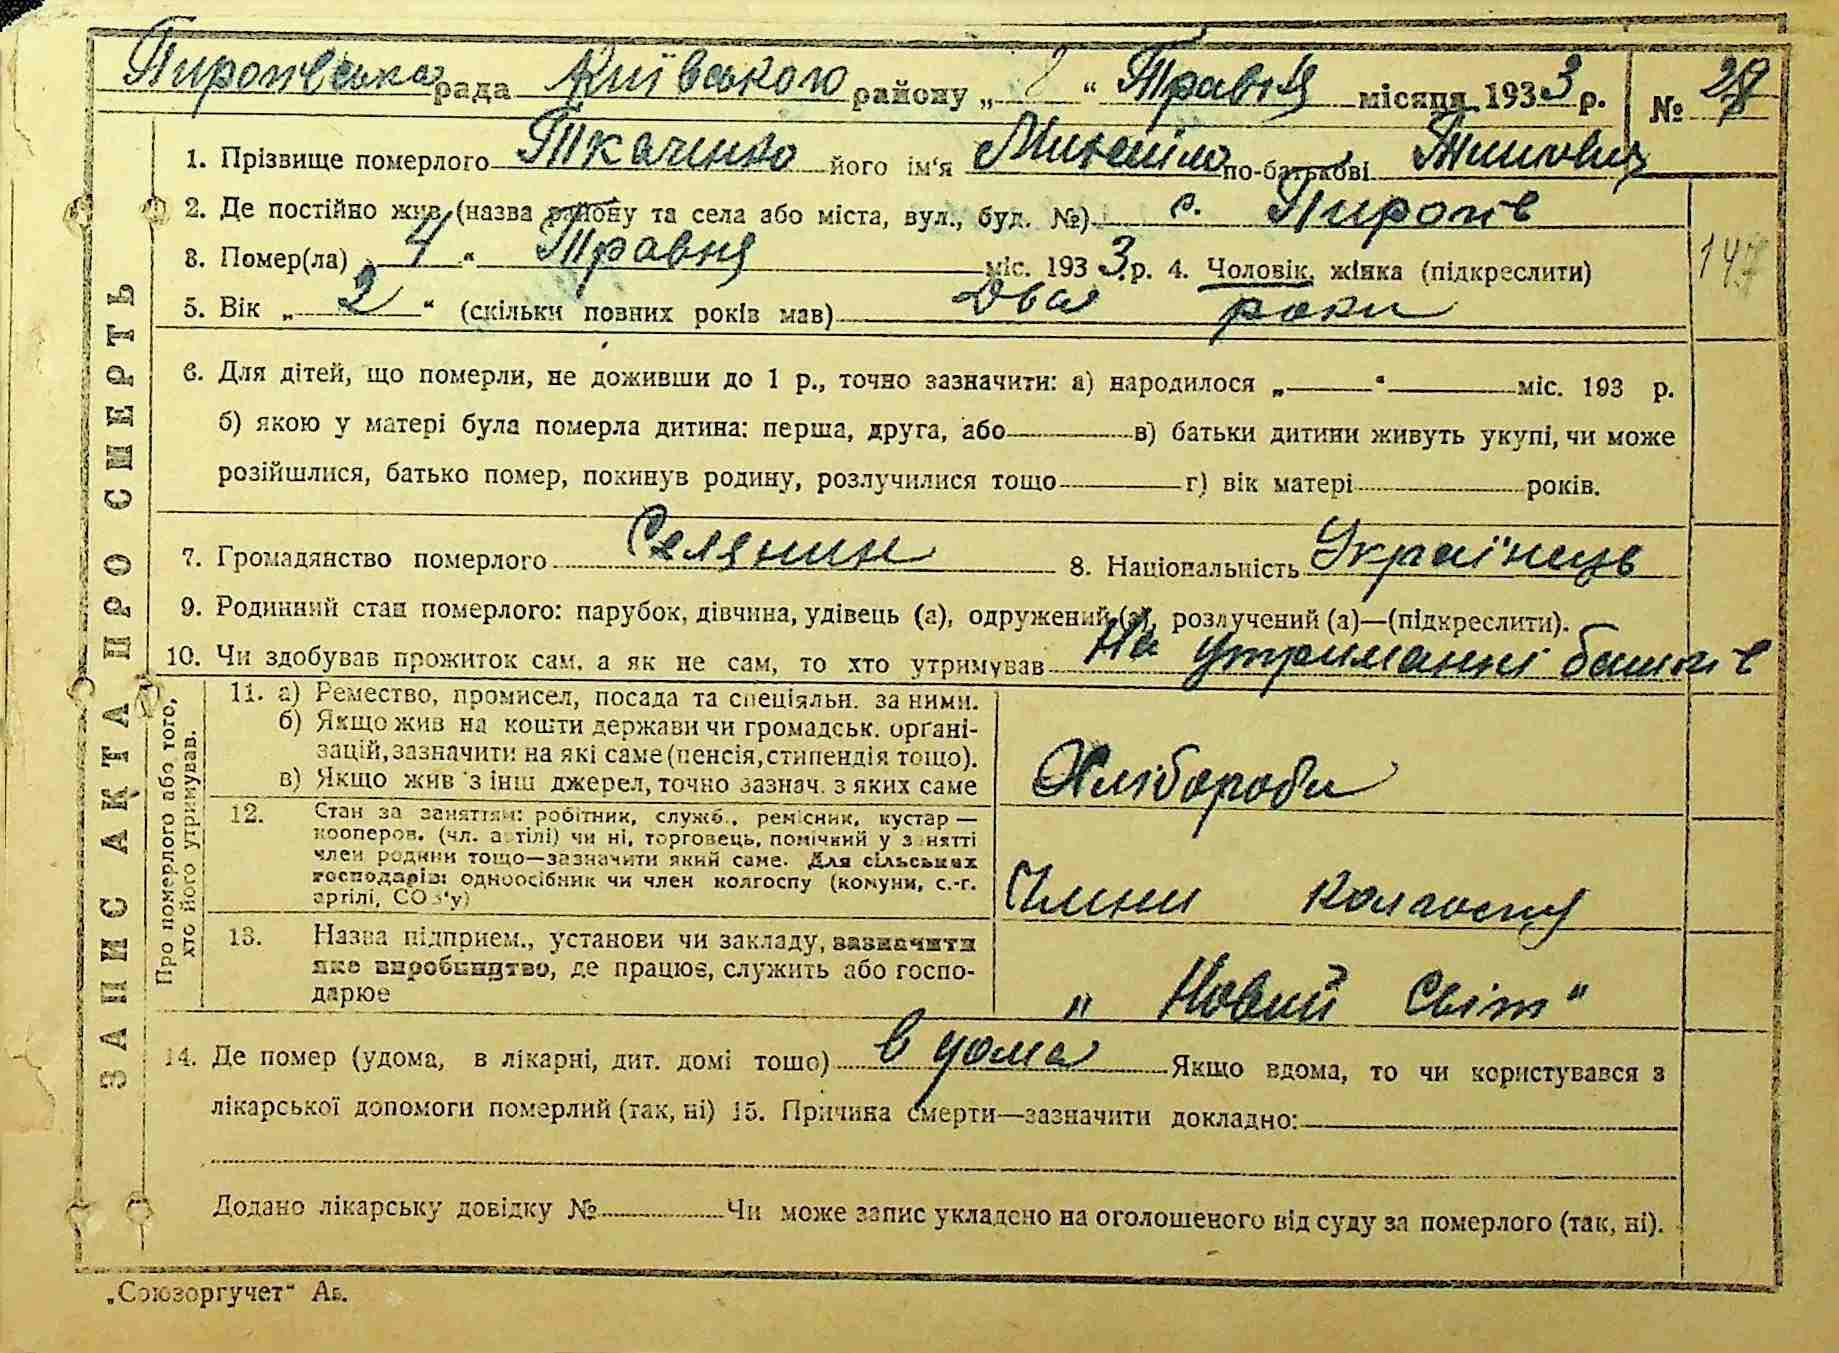 Пирогівська рада Київського району „ " Травня місяця 1933 р. № 28
1. Прізвище померлого Ткаченко його ім'я Михайло по-батькові
2. Де постійно жив (назва району та села або міста, вул., буд. №) с. Пирогів
3. Помер(ла) 4 " Травня міс. 1933 р. 4. Чоловік, жінка (підкреслити)
147
5. Вік „ 2 " (скільки повних років мав) Два роки
6. Для дітей, що померли, не доживши до 1 р., точно зазначити: а) народилося „ " міс. 193 р.
б) якою у матері була померла дитина: перша, друга, або в) батьки дитини живуть укупі, чи може
розійшлися, батько помер, покинув родину, розлучилися тощо г) вік матері років.
7. Громадянство померлого Селянин 8. Національність Українець
9. Родинний стан померлого: парубок, дівчина, удівець (а), одружений (а), розлучений (а)—(підкреслити).
10. Чи здобував прожиток сам, а як не сам, то хто утримував На утриманні батьків
ЗАПИС АКТА ПРО СМЕРТЬ
Про померлого або того,
хто його утримував.
11. а) Ремество, промисел, посада та спеціяльн. за ними.
б) Якщо жив на кошти держави чи громадськ. орґані-
зацій, зазначити на які саме (пенсія, стипендія тощо).
в) Якщо жив з інш джерел, точно зазнач. з яких саме
Хлібороби
12. Стан за заняттям: робітник, служб., ремісник, кустар —
кооперов. (чл. артілі) чи ні, торговець, помічний у занятті
член родини тощо—зазначити який саме. Для сільських
господарів: одноосібник чи член колгоспу (комуни, с.-г.
артілі, СОЗ'у)
Члени колгоспу
13. Назва підприєм., установи чи закладу, зазначити
яке виробництво, де працює, служить або госпо-
дарює
„ Новий Світ "
14. Де помер (удома, в лікарні, дит. домі тощо) в дома Якщо вдома, то чи користувався з
лікарської допомоги померлий (так, ні) 15. Причина смерти—зазначити докладно:
Додано лікарську довідку № Чи може запис укладено на оголошеного від суду за померлого (так, ні).
„Союзоргучет"